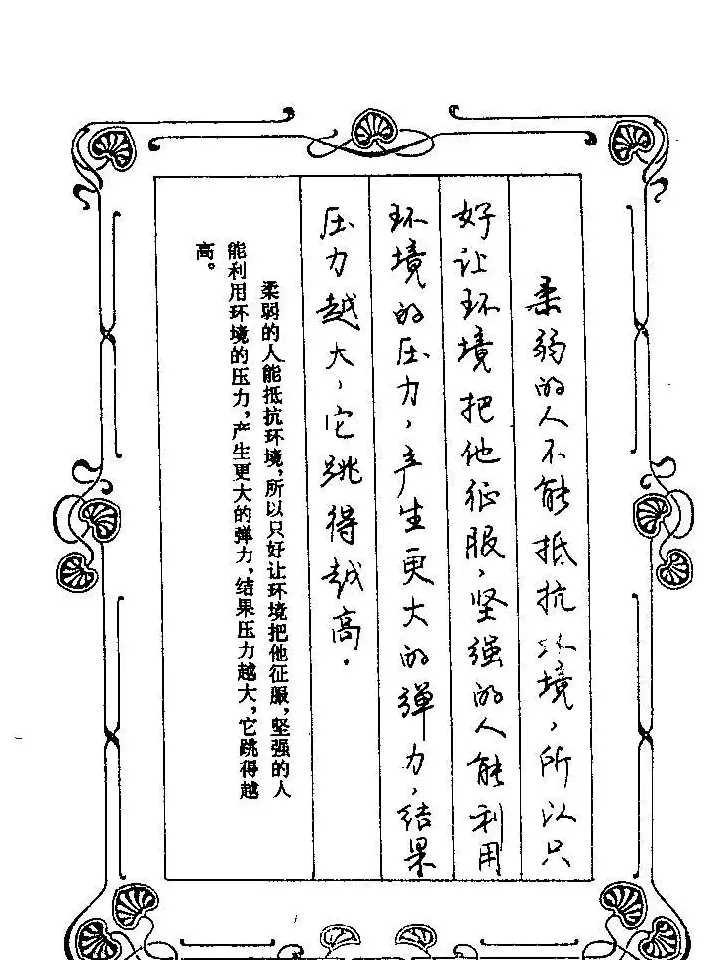 柔弱的人不能抵抗环境，所以只
好让环境把他征服，坚强的人能利用
环境的压力，产生更大的弹力，结果
压力越大，它跳得越高．
柔弱的人能抵抗环境，所以只好让环境把他征服，坚强的人
能利用环境的压力，产生更大的弹力，结果压力越大，它跳得越
高。